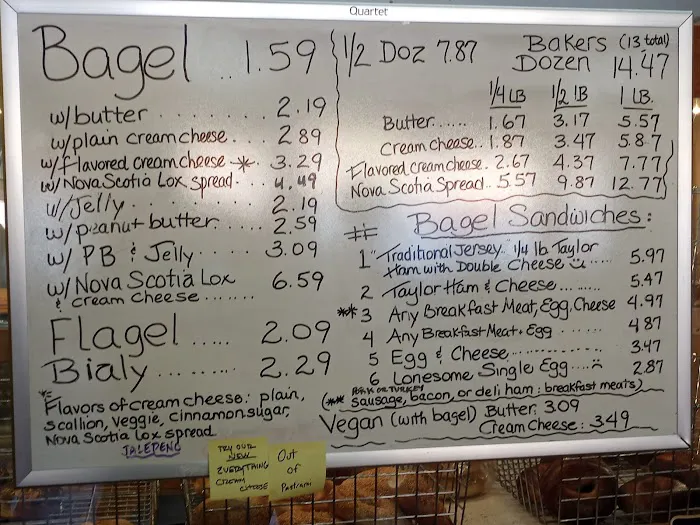 Quartet
Bagel .. 1.59
w/butter ........ 2.19
w/plain cream cheese ... 2 89
w/flavored cream cheese * . 3.29
w/Nova Scotia Lox spread . 4.49
w/Jelly ........ 2.19
w/peanut butter .... 2.59
w/ PB & Jelly ..... 3.09
w/Nova Scotia Lox 6.59
& cream cheese .......
Flagel ..... 2.09
Bialy ......... 2.29
* Flavors of cream cheese: plain,
scallion, veggie, cinnamon sugar,
Nova Scotia lox spread
JALEPENO
TRY OUR
NEW
EVERYTHING
CREAM
CHEESE
Out
of
Pastrami
1/2 Doz 7.87
Bakers (13 total)
Dozen 14.47
1/4 LB 1/2 LB 1 LB.
Butter...... 1.67 3.17 5.57
Cream cheese.. 1.87 3.47 5.87
Flavored cream cheese.. 2.67 4.37 7.77
Nova Scotia Spread.. 5.57 9.87 12.77
# Bagel Sandwiches:
1 "Traditional Jersey" 1/4 lb Taylor
Ham with Double Cheese 5.97
2 Taylor Ham & Cheese ........ 5.47
** 3 Any Breakfast Meat, Egg, Cheese 4.97
4 Any Breakfast Meat + Egg ...... 4 87
5 Egg & Cheese ............. 3.47
6 Lonesome Single Egg .... 2.87
PORK OR TURKEY
(** sausage, bacon, or deli ham: breakfast meats)
Vegan (with bagel) Butter: 3.09
Cream Cheese: 3.49